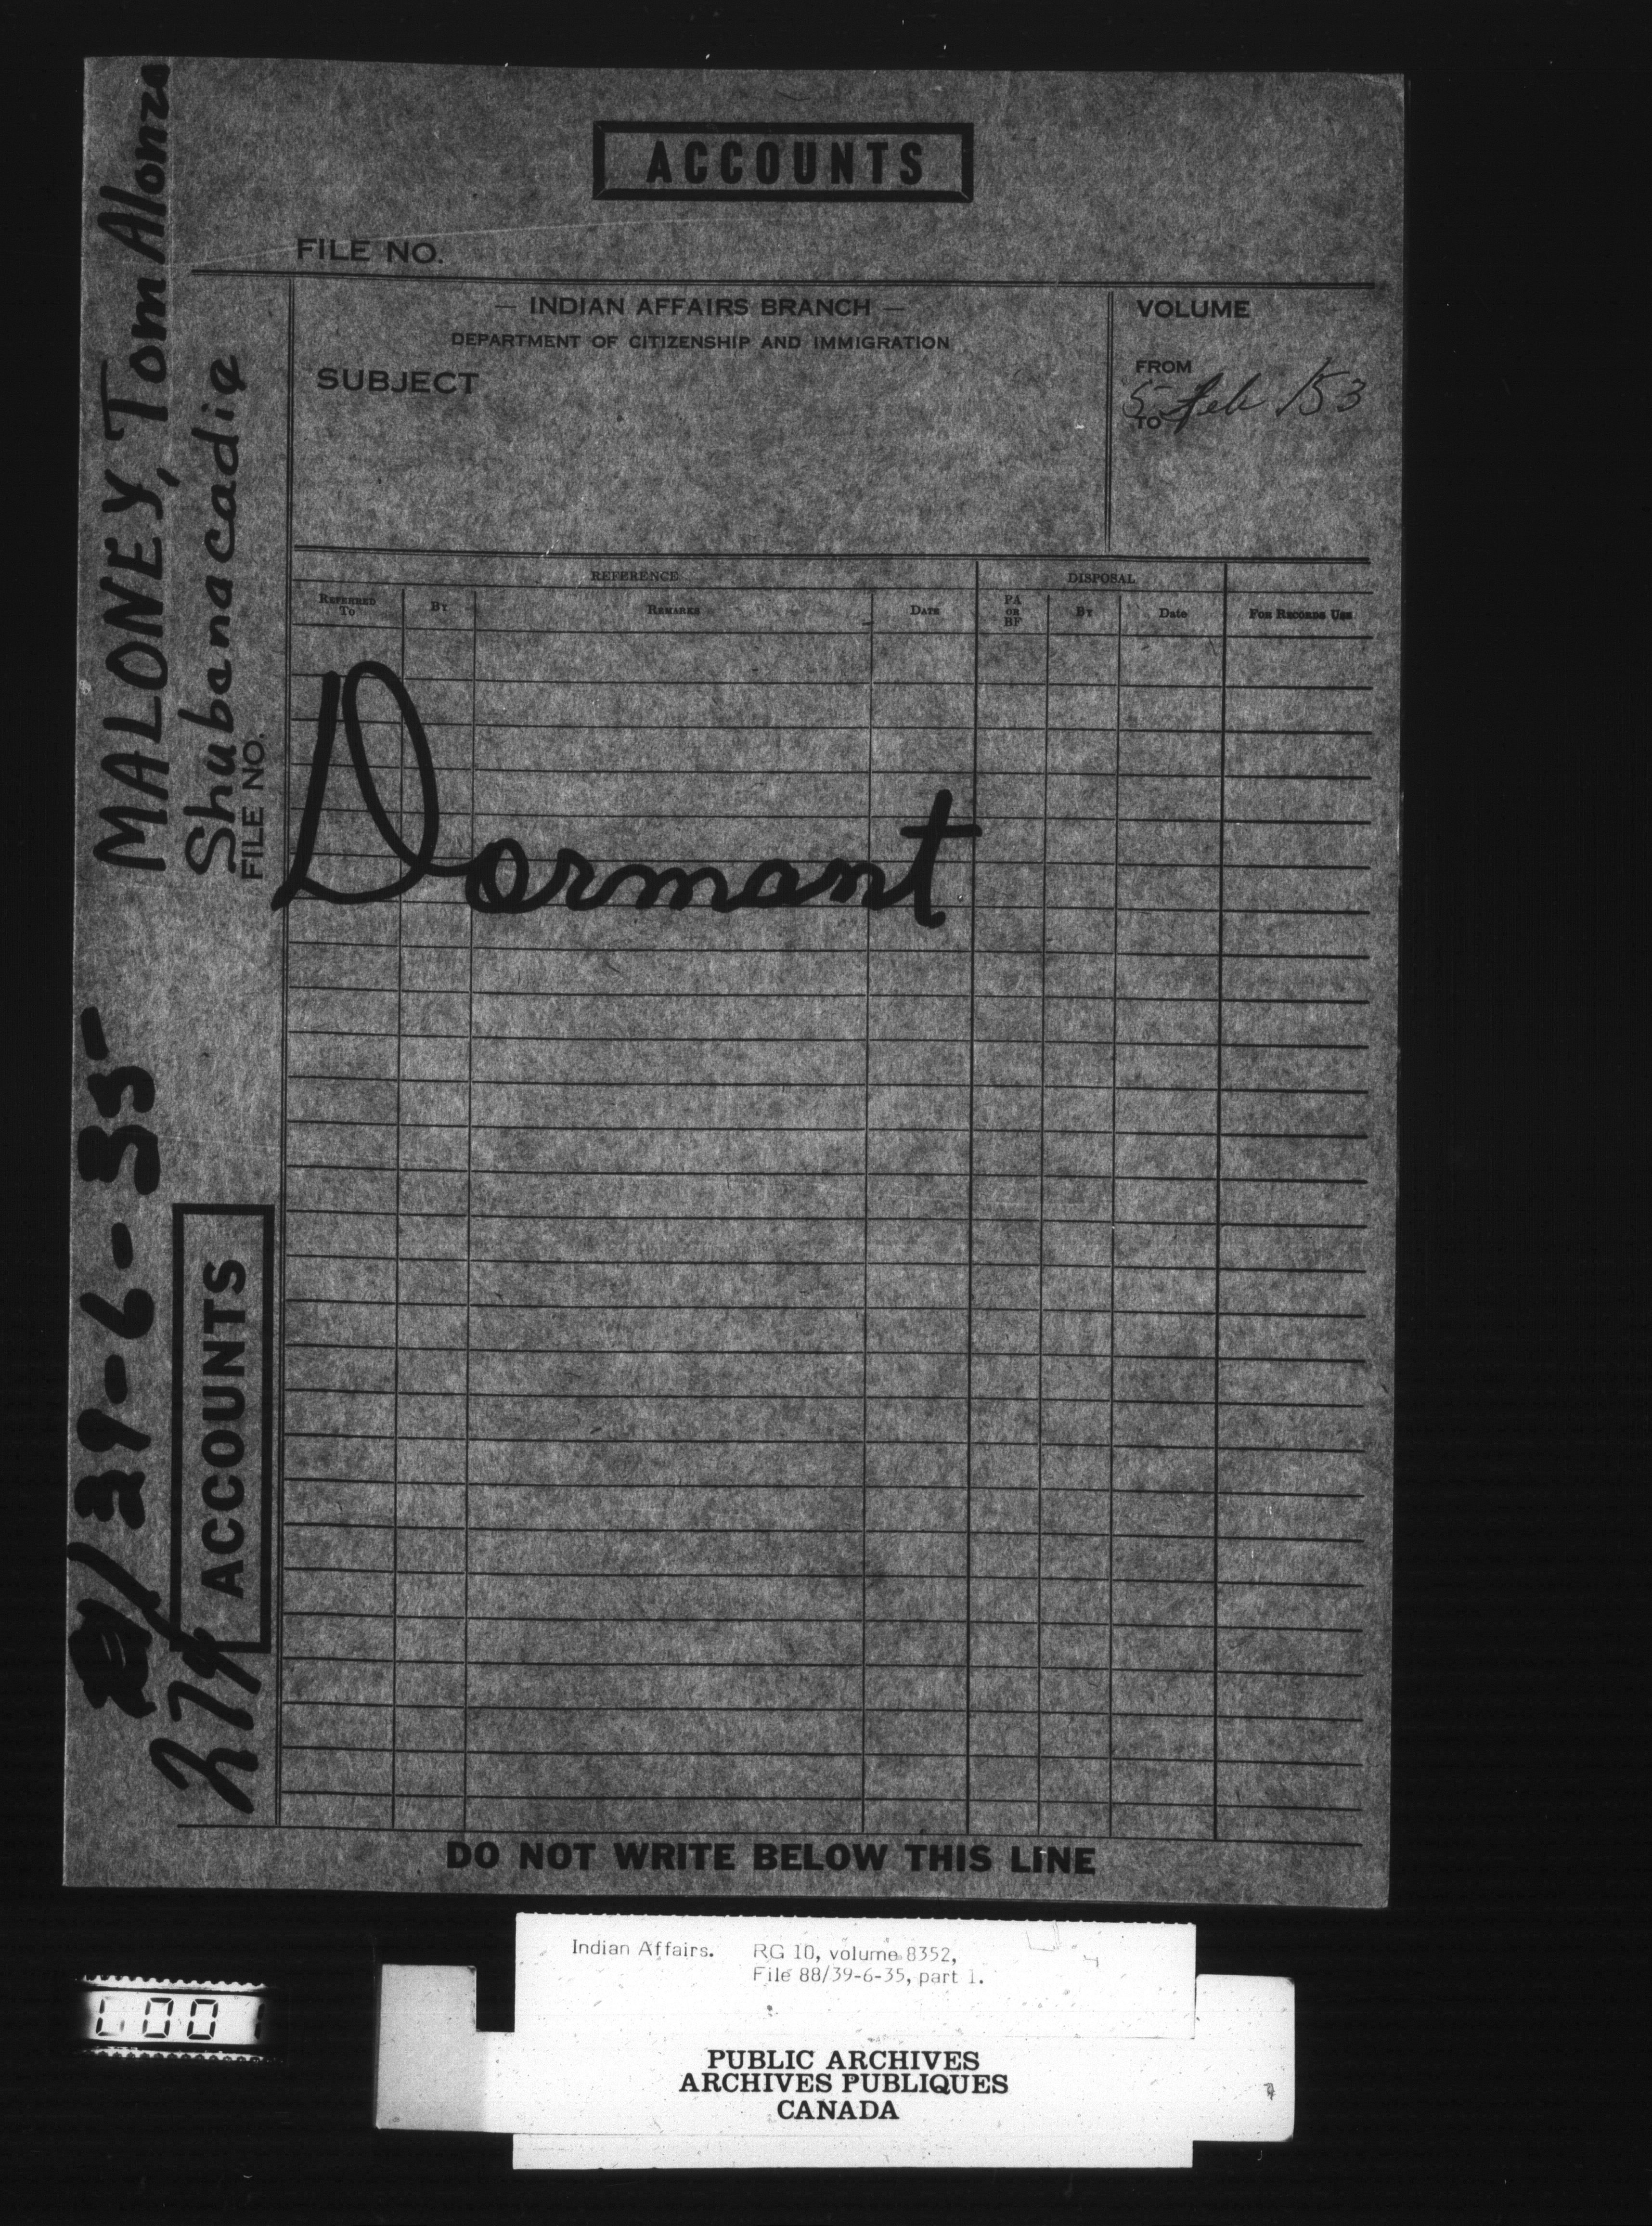 ACCOUNTS
FILE NO.
— INDIAN AFFAIRS BRANCH —
DEPARTMENT OF CITIZENSHIP AND IMMIGRATION
SUBJECT
VOLUME
FROM
5 Feb /53
TO
REFERENCE
DISPOSAL
REFERRED TO
BY
REMARKS
DATE
PA OR BF
BY
Date
FOR RECORDS USE
Dormant
MALONEY, Tom Alonzo
Shubenacadie
FILE NO.
/39-6-35-
ACCOUNTS
DO NOT WRITE BELOW THIS LINE
Indian Affairs. RG 10, volume 8352,
File 88/39-6-35, part 1.
PUBLIC ARCHIVES
ARCHIVES PUBLIQUES
CANADA